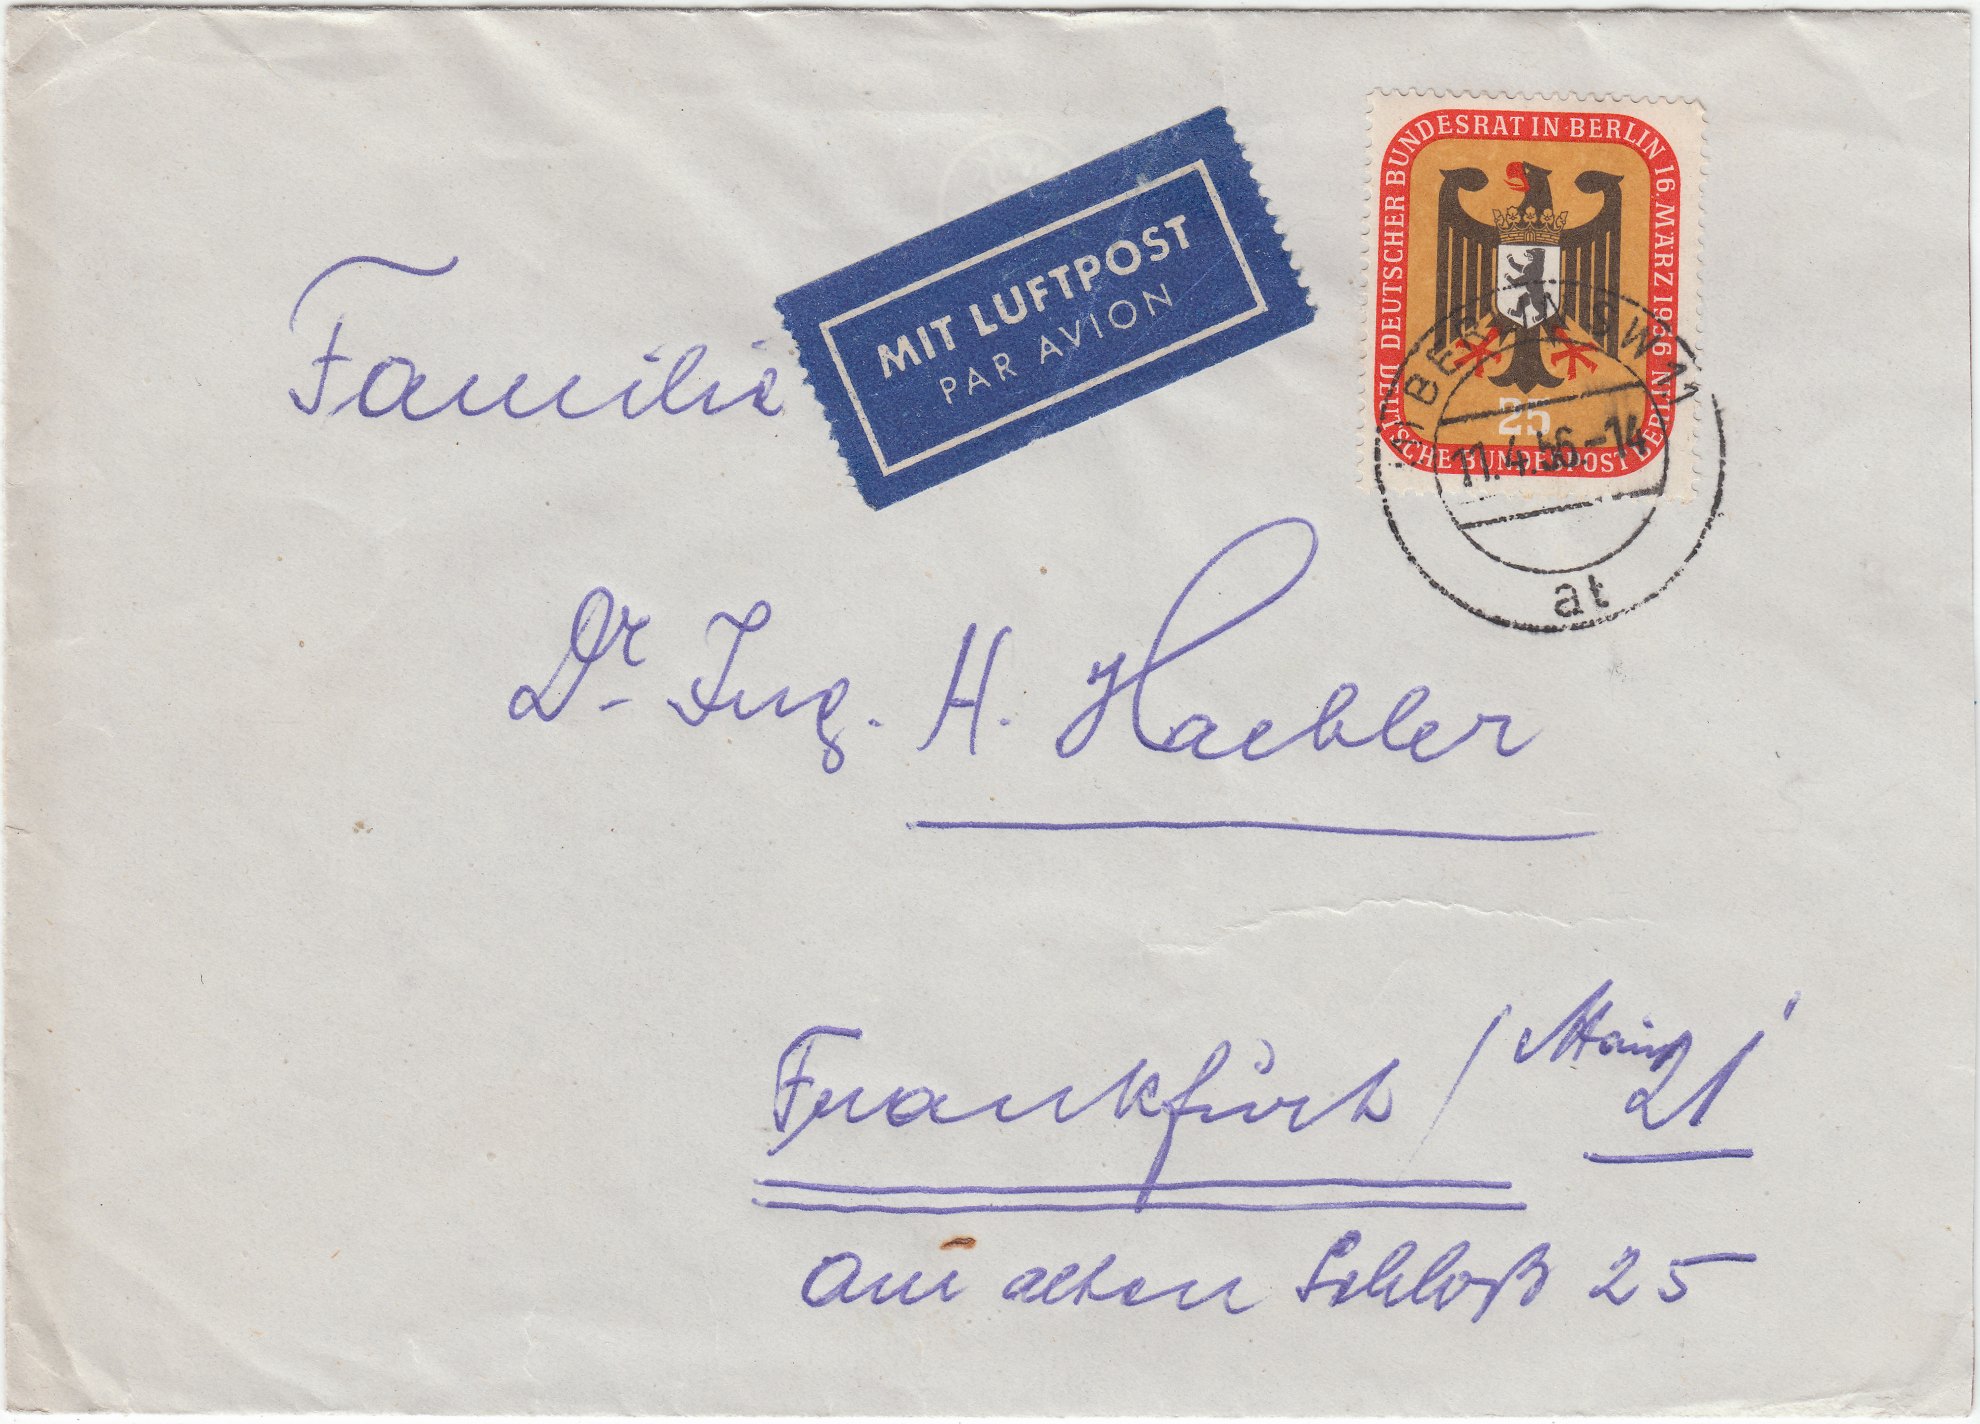 DEUTSCHER BUNDESRAT IN BERLIN 16. MÄRZ 1956
25
DEUTSCHE BUNDESPOST BERLIN
BERLIN SW 11
11.4.56.-14
at
MIT LUFTPOST
PAR AVION
Familie
Dr. Ing. H. Haebler
Frankfurt / Main 21
Am alten Schloß 25